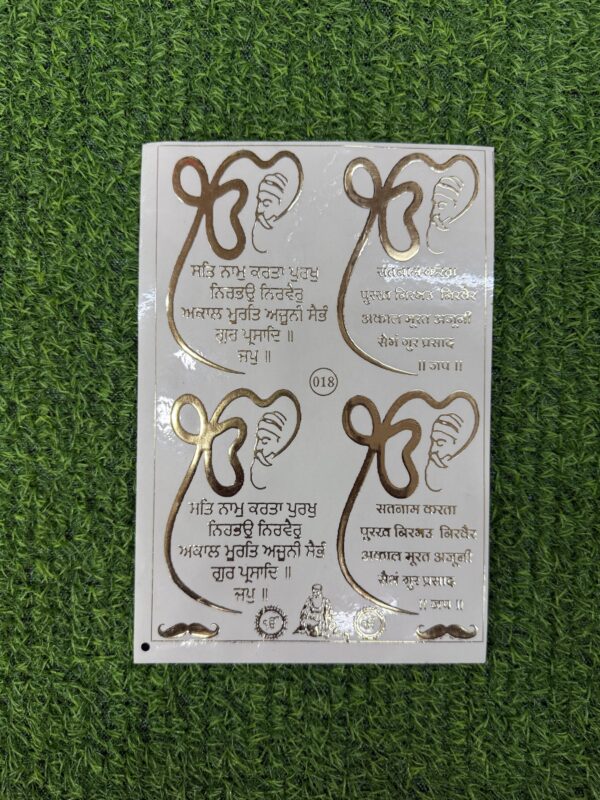 ੴ
ਸਤਿ ਨਾਮੁ ਕਰਤਾ ਪੁਰਖੁ
ਨਿਰਭਉ ਨਿਰਵੈਰੁ
ਅਕਾਲ ਮੂਰਤਿ ਅਜੂਨੀ ਸੈਭੰ
ਗੁਰ ਪ੍ਰਸਾਦਿ ॥
ਜਪੁ ॥
ੴ
सतनाम करता
पुरख निरभउ निरवैर
अकाल मूरत अजूनी
सैभं गुर प्रसाद
॥ जप ॥
018
ੴ
ਸਤਿ ਨਾਮੁ ਕਰਤਾ ਪੁਰਖੁ
ਨਿਰਭਉ ਨਿਰਵੈਰੁ
ਅਕਾਲ ਮੂਰਤਿ ਅਜੂਨੀ ਸੈਭੰ
ਗੁਰ ਪ੍ਰਸਾਦਿ ॥
ਜਪੁ ॥
ੴ
सतनाम करता
पुरख निरभउ निरवैर
अकाल मूरत अजूनी
सैभं गुर प्रसाद
॥ जप ॥
ੴ